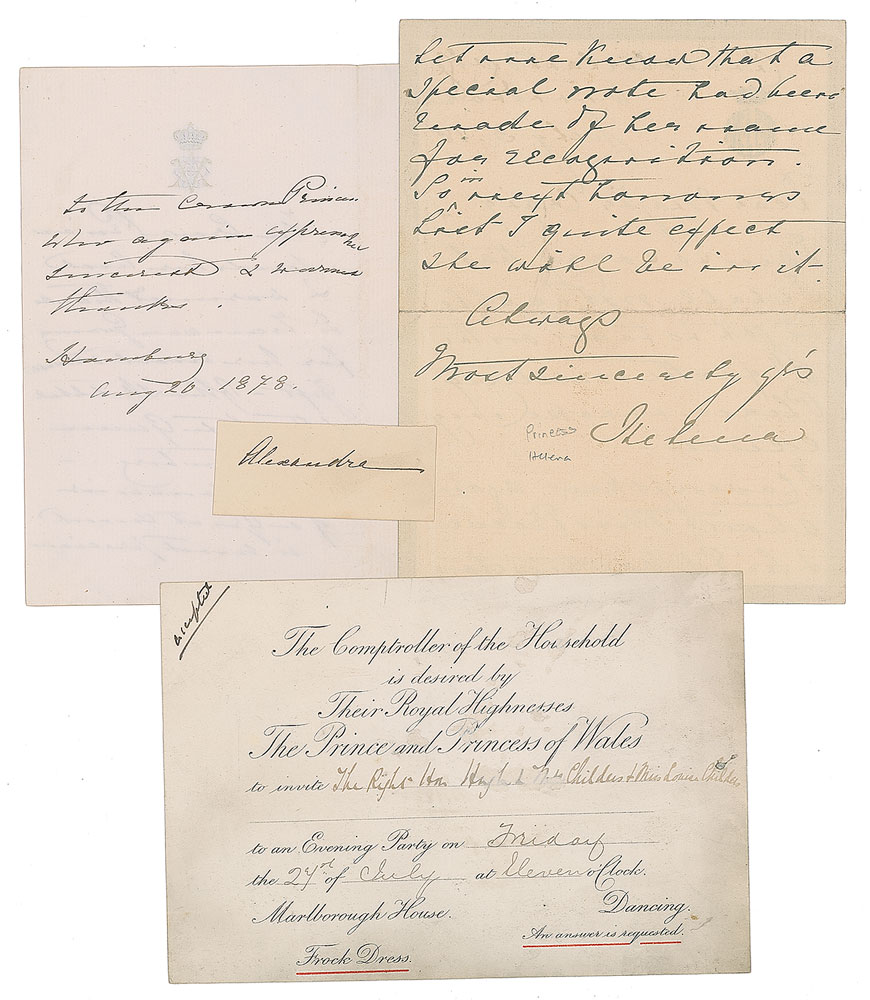 to the Crown Princess
who again expresses her
sincerest & warmest
thanks.
Homburg
Aug 20. 1878.
let me know that a
special note had been
made of her name
for recognition.
So in next honours
List I quite expect
she will be in it -
Always
Most sincerely yrs
Helena
Princess
Helena
Alexandra
accepted
The Comptroller of the Household
is desired by
Their Royal Highnesses
The Prince and Princess of Wales
to invite The Right Hon Hugh & Mrs Childers & Miss Louise Childers
to an Evening Party on Friday
the 27th of July at Eleven o'Clock.
Marlborough House. Dancing.
An answer is requested.
Frock Dress.